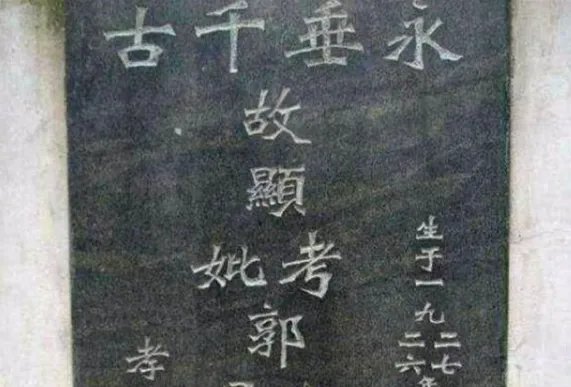 永垂千古
生于一九二七
二六年
故顯考妣郭
孝